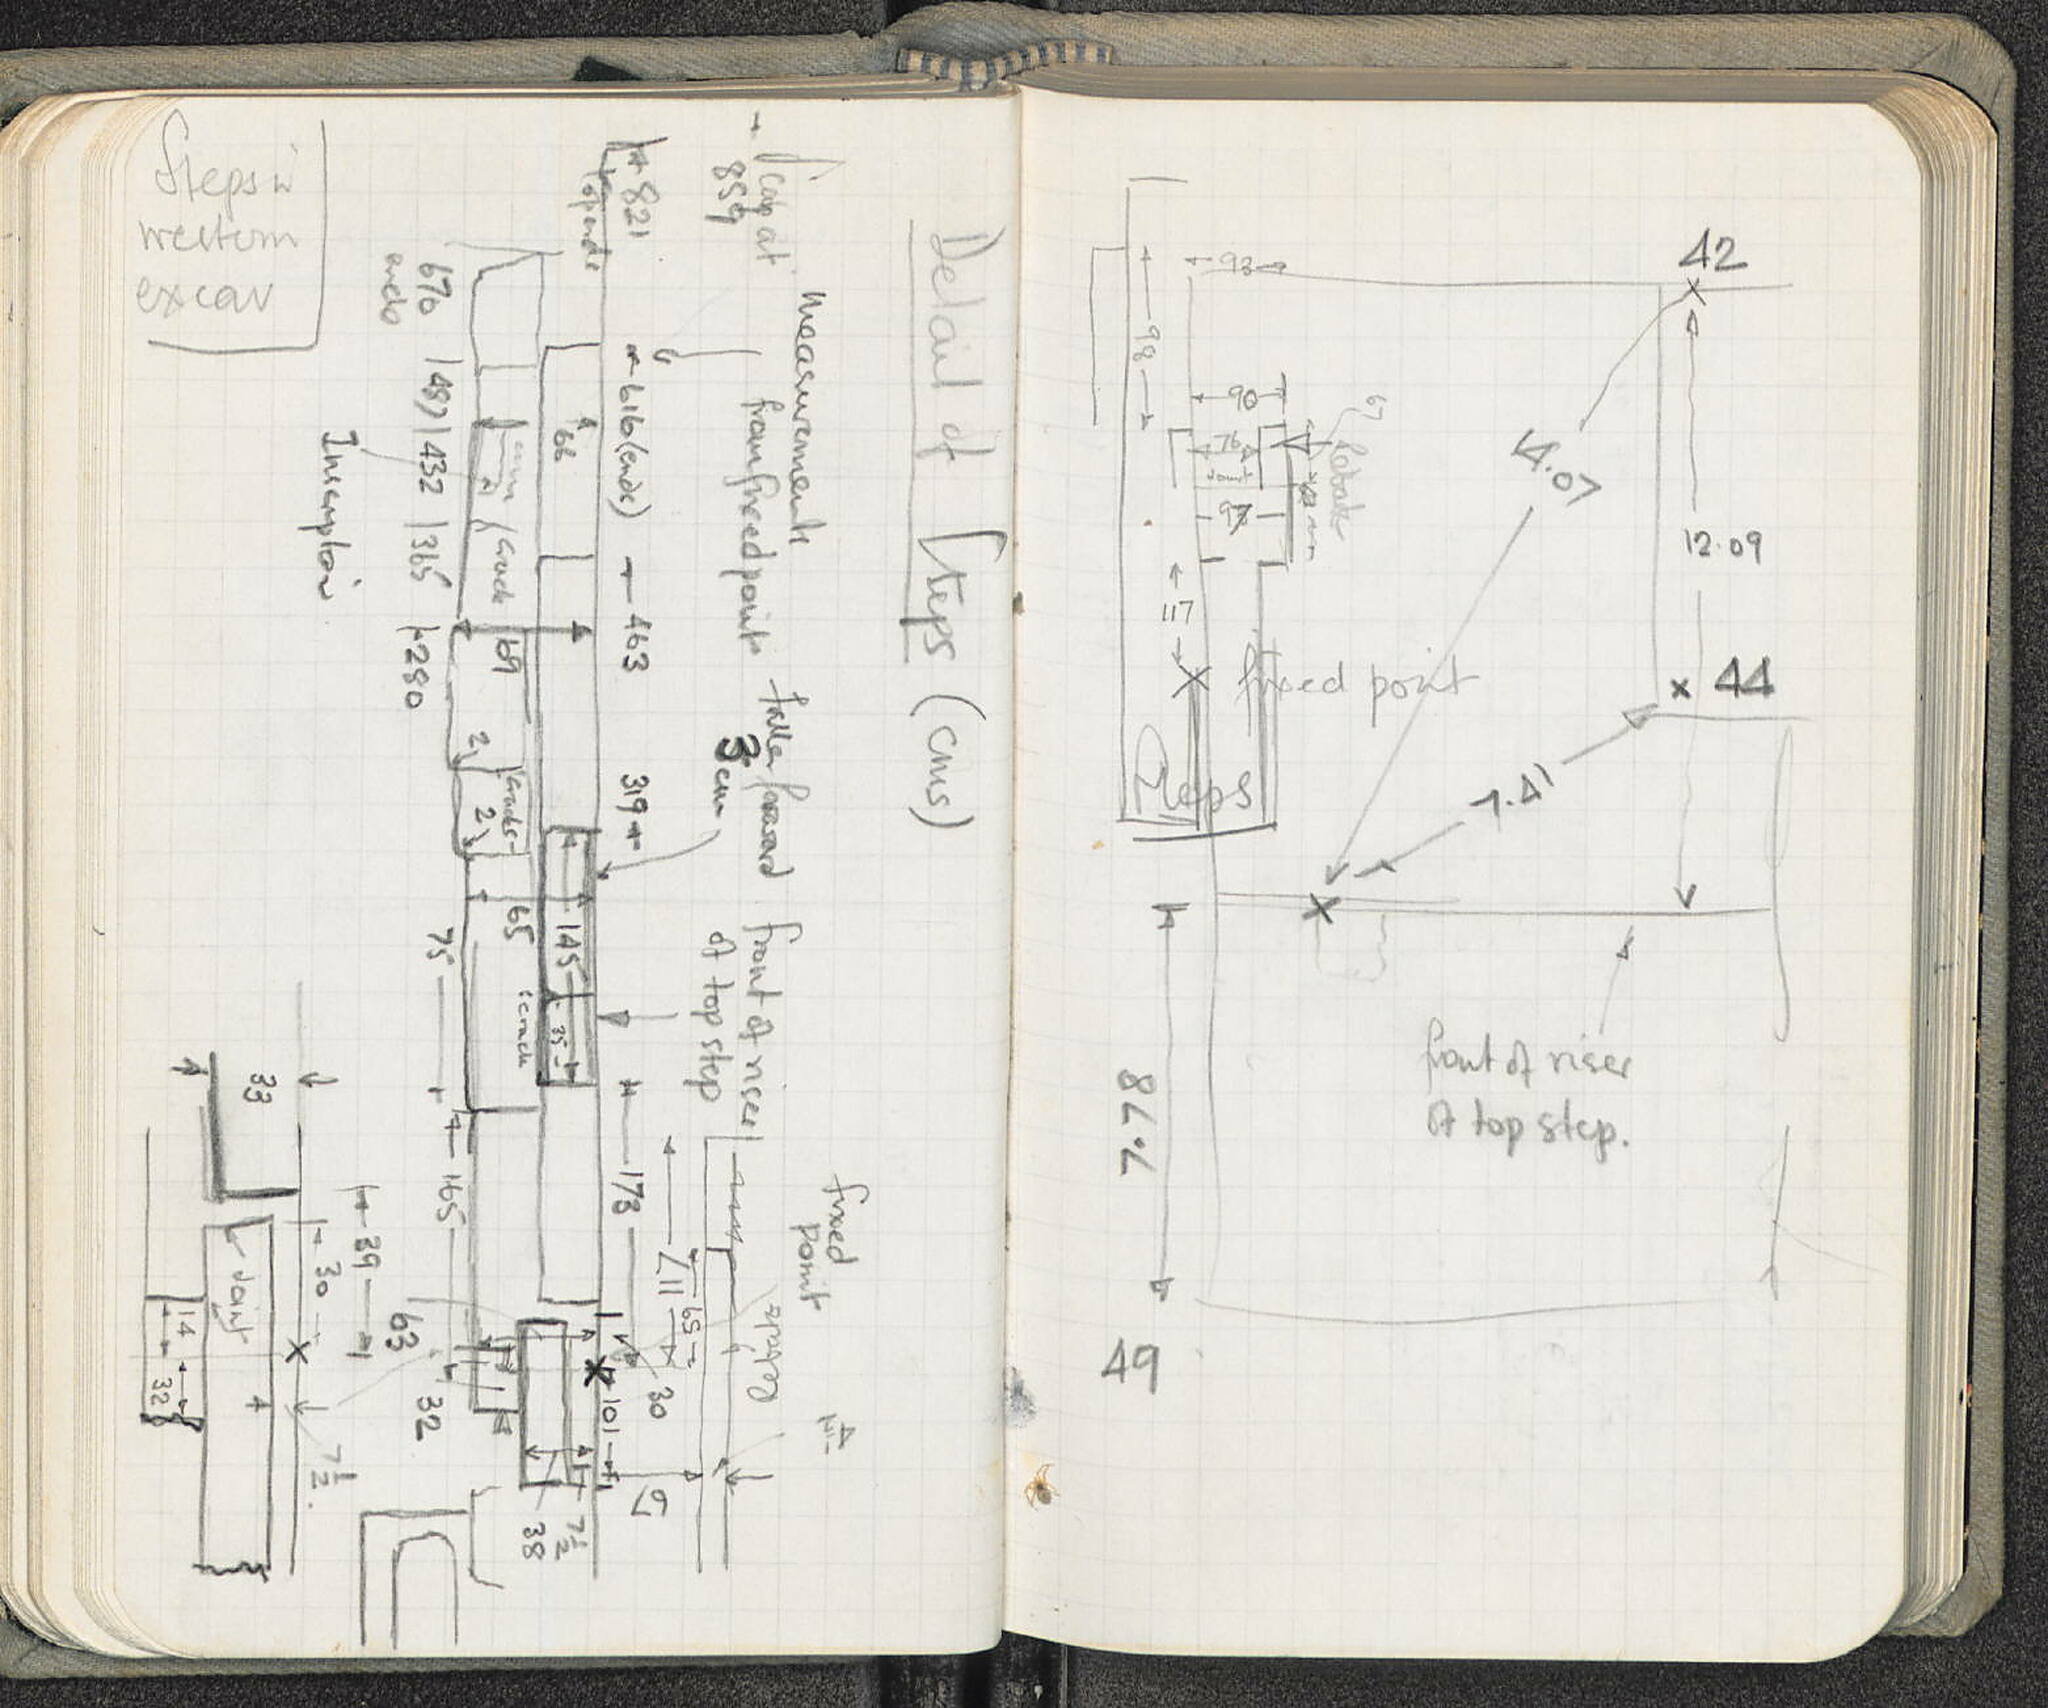 Steps in
western
excav
Detail of Steps (cms)
measurements
from fixed point
gap at
859
821
to ends
616 (ends)
463
319
173
101
falls forward
3 cm
front of riser
of top step
fixed
point
117
65
30
66
145
35
7½
38
crack
69
2
cracks
2
65
: crack
670
ends
487
432
365
280
75
165
63
32
Inscription
39
33
30
Joint
14
32
7½.
42
93
98
90
76
Joint
97
67
Rebate
117
fixed point
Steps
14.07
12.09
44
7.41
front of riser
of top step.
7.78
49